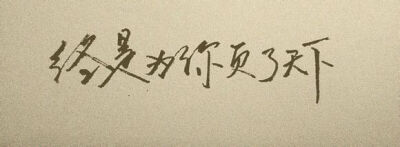 终是为你负了天下